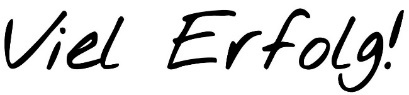 Viel Erfolg!